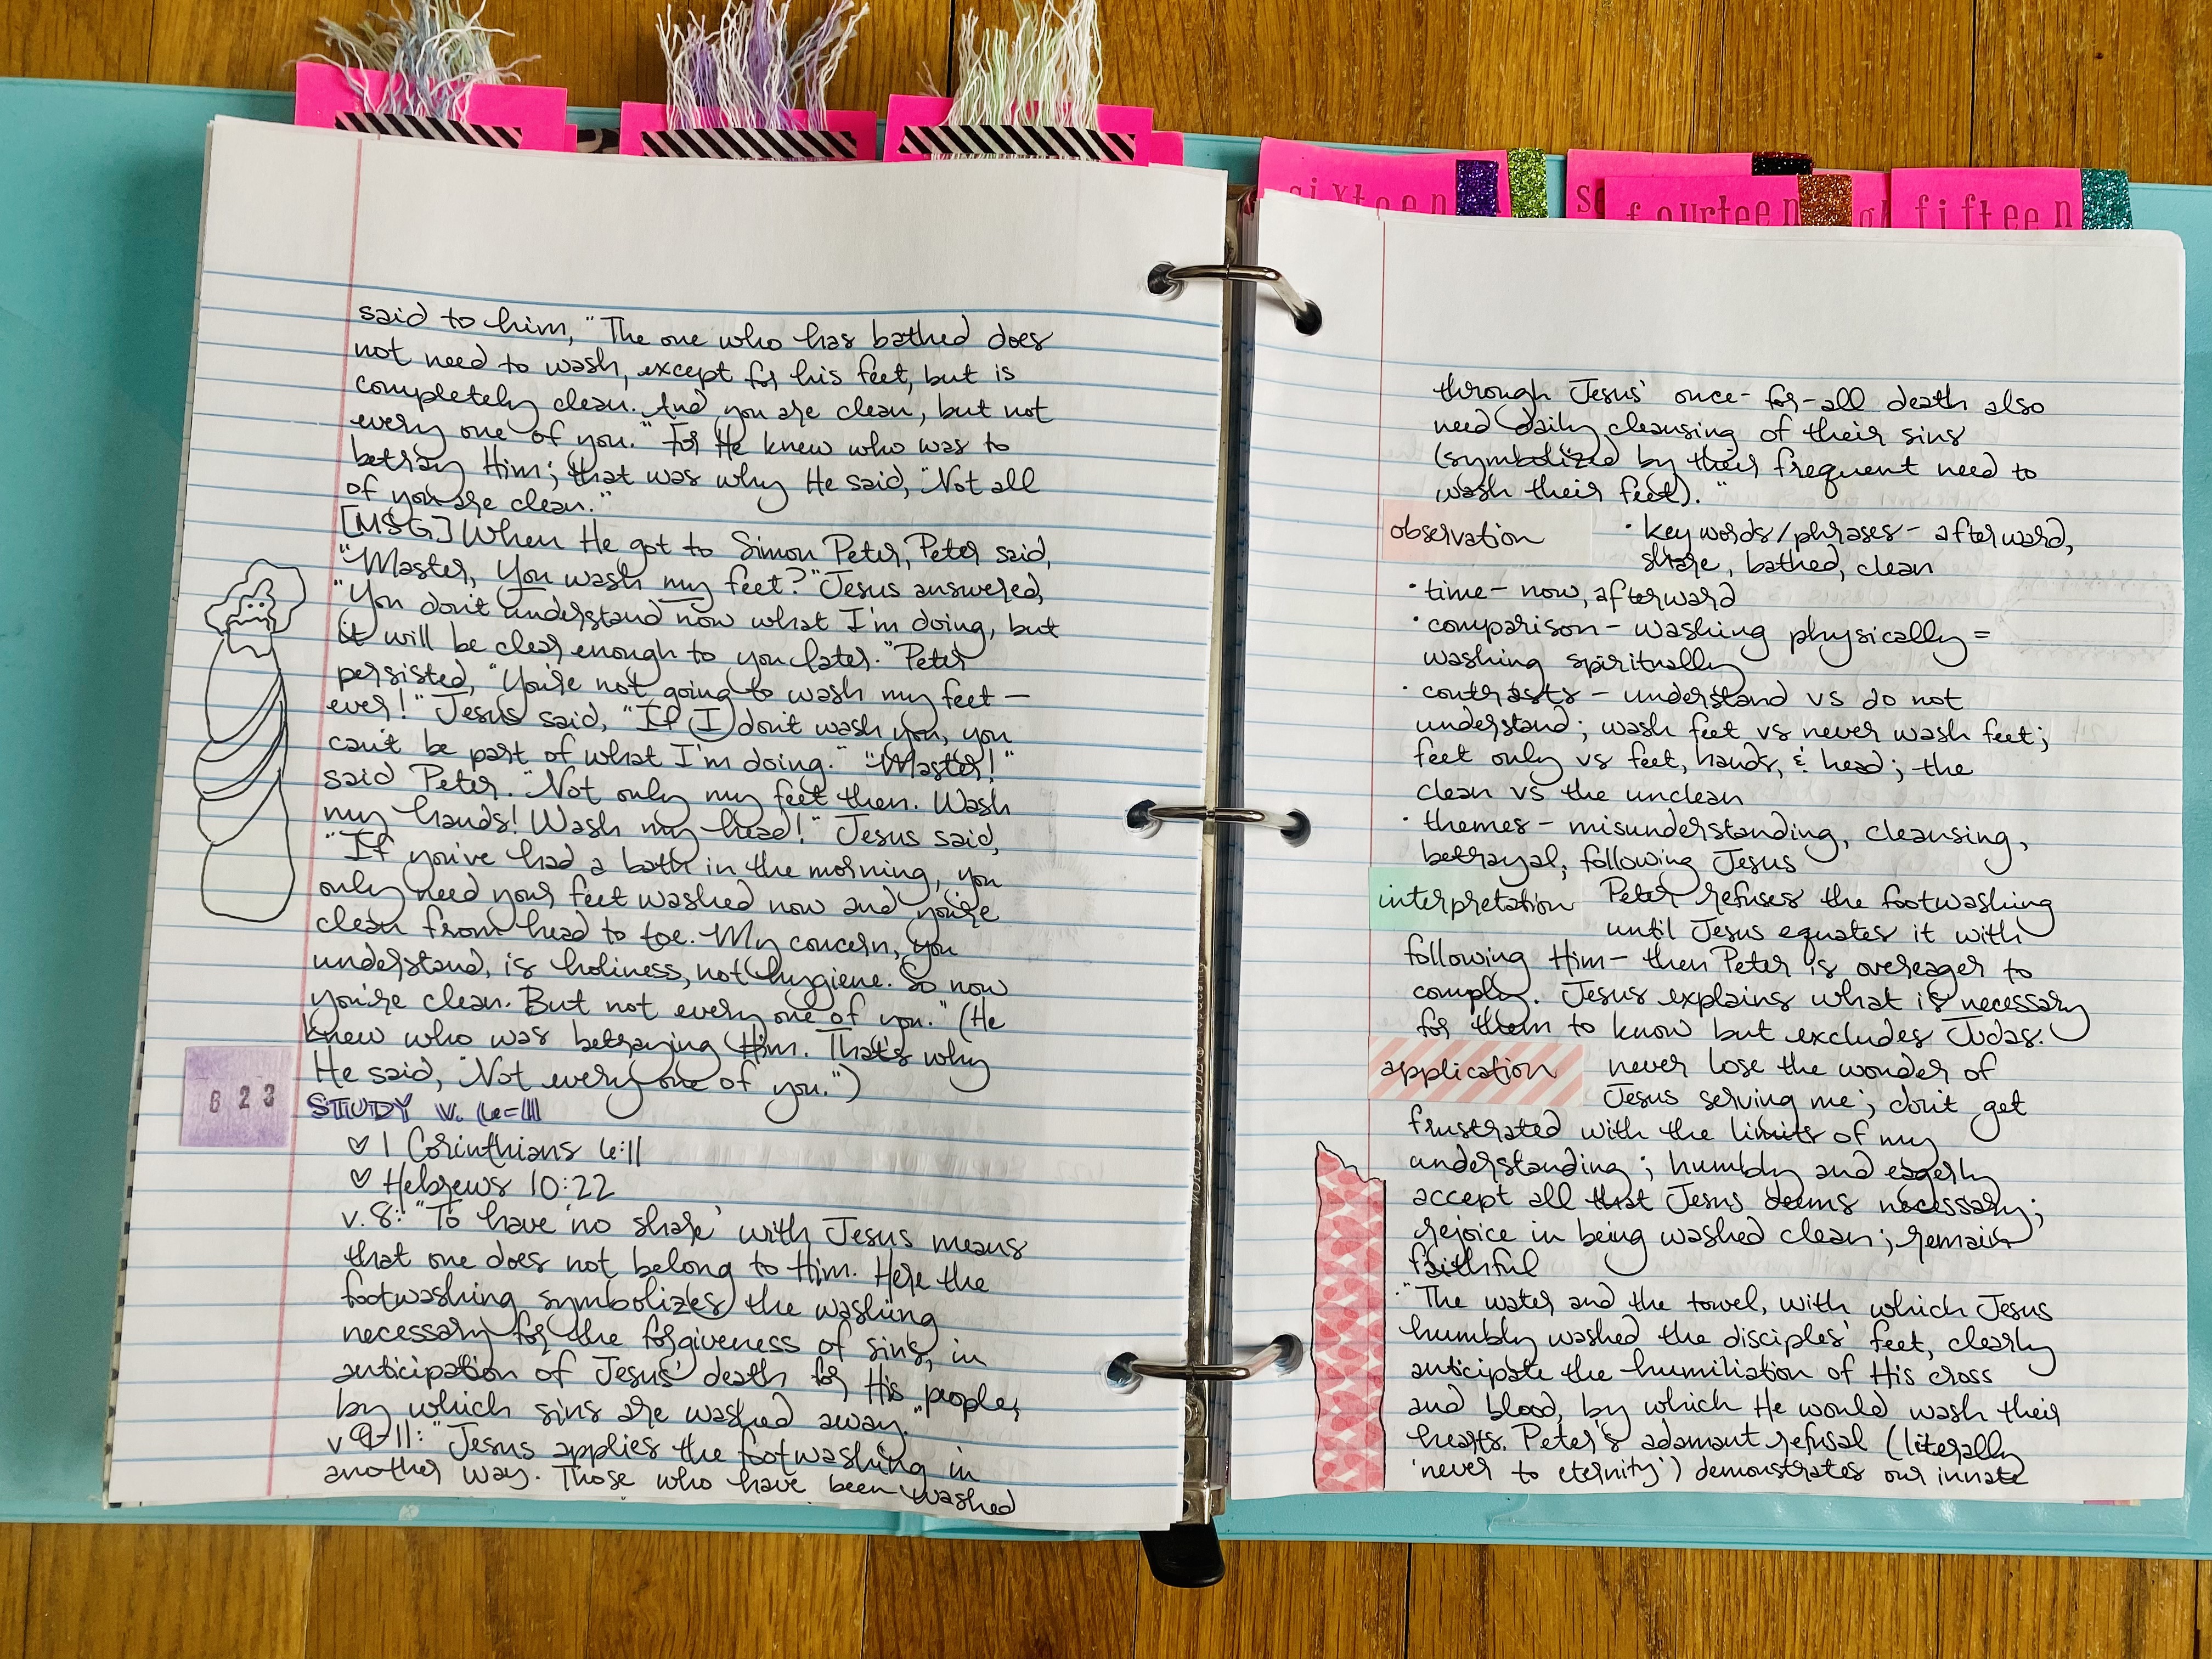 said to him, "The one who has bathed does
not need to wash, except for his feet, but is
completely clean. And you are clean, but not
every one of you." For He knew who was to
betray Him; that was why He said, "Not all
of you are clean."
[MSG] When He got to Simon Peter, Peter said,
"Master, You wash my feet?" Jesus answered,
"You don't understand now what I'm doing, but
it will be clear enough to you later." Peter
persisted, "You're not going to wash my feet—
ever!" Jesus said, "If I don't wash you, you
can't be part of what I'm doing." "Master!"
said Peter. "Not only my feet then. Wash
my hands! Wash my head!" Jesus said,
"If you've had a bath in the morning, you
only need your feet washed now and you're
clean from head to toe. My concern, you
understand, is holiness, not hygiene. So now
you're clean. But not every one of you." (He
knew who was betraying Him. That's why
He said, "Not every one of you.")
623
STUDY v. 6-11
♡ 1 Corinthians 6:11
♡ Hebrews 10:22
v. 8: "To have 'no share' with Jesus means
that one does not belong to Him. Here the
footwashing symbolizes the washing
necessary for the forgiveness of sins, in
anticipation of Jesus' death for His people,
by which sins are washed away."
v 9-11: "Jesus applies the footwashing in
another way. Those who have been washed
sixteen
fourteen
fifteen
through Jesus' once-for-all death also
need daily cleansing of their sins
(symbolized by their frequent need to
wash their feet)."
observation • key words/phrases - afterward,
share, bathed, clean
• time - now, afterward
• comparison - washing physically =
washing spiritually
• contrasts - understand vs do not
understand; wash feet vs never wash feet;
feet only vs feet, hands, & head; the
clean vs the unclean
• themes - misunderstanding, cleansing,
betrayal, following Jesus
interpretation Peter refuses the footwashing
until Jesus equates it with
following Him - then Peter is overeager to
comply. Jesus explains what is necessary
for them to know but excludes Judas.
application never lose the wonder of
Jesus serving me; don't get
frustrated with the limits of my
understanding; humbly and eagerly
accept all that Jesus deems necessary;
rejoice in being washed clean; remain
faithful
• "The water and the towel, with which Jesus
humbly washed the disciples' feet, clearly
anticipate the humiliation of His cross
and blood, by which He would wash their
hearts. Peter's adamant refusal (literally
'never to eternity') demonstrates our innate